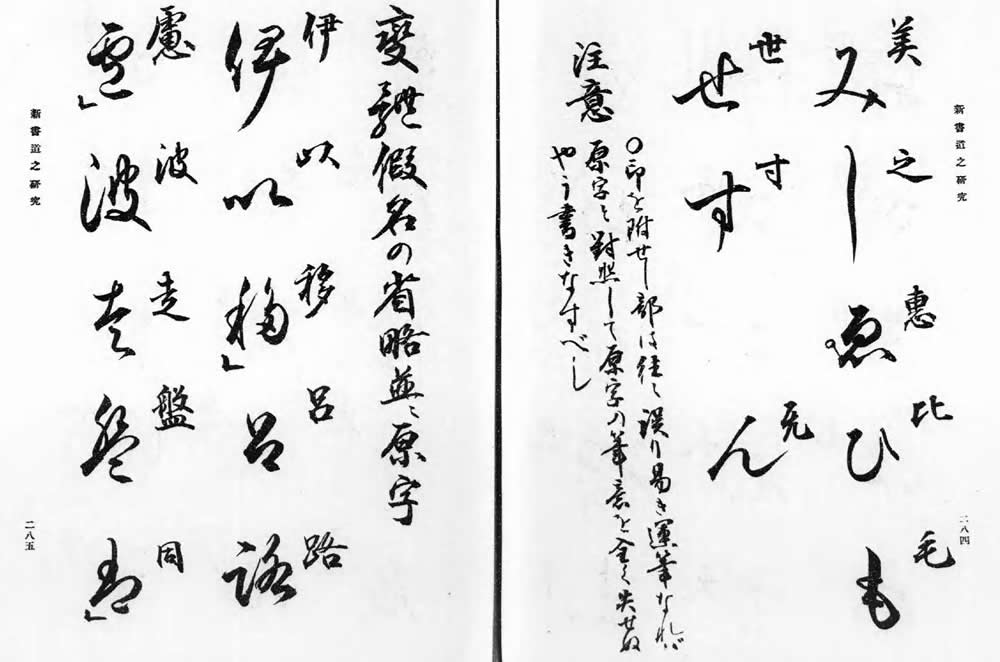 新書道之研究
二八四
美 之 惠 比 毛
みしゑひも
世 寸 旡
せすん
注意
○印を附せし部は往々誤り易き運筆なれば
原字と對照して原字の筆意を全く失せぬ
やう書きなすべし
變體假名の省略並に原字
伊 以 移 呂 路
伊以移」呂路
慮 波 走 盤 同
慮」波走盤
新書道之研究
二八五